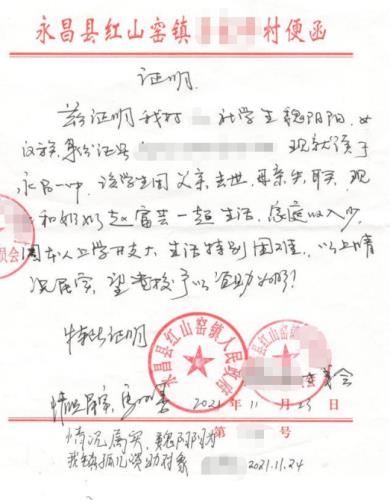 永昌县红山窑镇 村便函
证明
兹证明我村 社学生魏阴阳，女
汉族，身份证号 现就读于
永昌一中，该学生因父亲去世，母亲失联，现
和奶奶赵富芸一起生活，家庭收入少，
因本人上学开支大，生活特别困难，以上情
况属实，望贵校予以资助为盼！
特此证明
永昌县红山窑镇人民政府
委员会
委员会
情况属实，
2021年11月23日
第 号
情况属实，魏阴阳为
我镇孤儿资助对象
2021.11.24